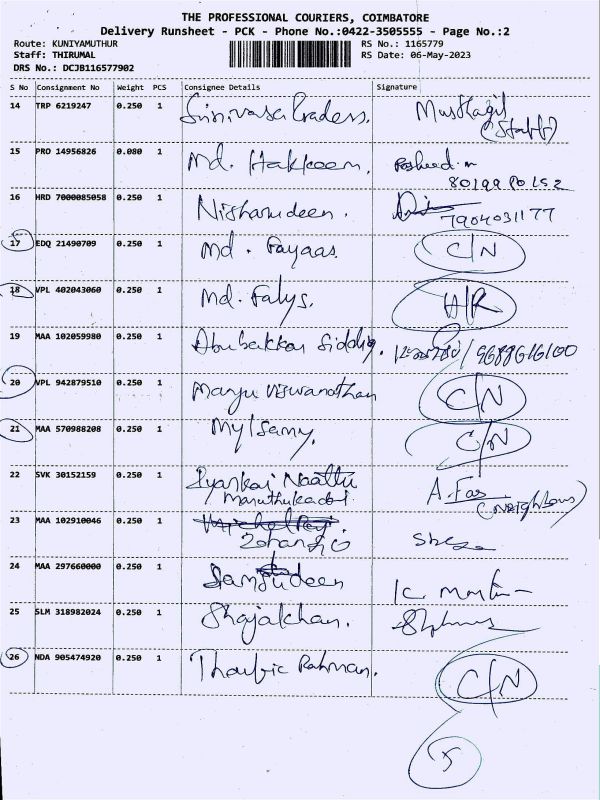 THE PROFESSIONAL COURIERS, COIMBATORE
Delivery Runsheet - PCK - Phone No.:0422-3505555 - Page No.:2
Route: KUNIYAMUTHUR RS No.: 1165779
Staff: THIRUMAL RS Date: 06-May-2023
DRS No.: DCJB116577902
S No Consignment No Weight PCS Consignee Details Signature
14 TRP 6219247 0.250 1 Srinivasa Traders.
(Staff)
15 PRO 14956826 0.080 1 Md. Hakkeem. Rasheed.m
16 HRD 7000085058 0.250 1 Nisharudeen.
7904031177
17 EDQ 21490709 0.250 1 Md. Fayaas. C/N
18 VPL 402043060 0.250 1 Md. Falys. H/R
19 MAA 102059980 0.250 1 Abubakkar Siddiq. / 9688616100
20 VPL 942879510 0.250 1 Manju Viswanathan C/N
21 MAA 570988208 0.250 1 Mylsamy. C/N
22 SVK 30152159 0.250 1 Iyarkai Naattu A. Fas
Maruthukadai. (Neighbours)
23 MAA 102910046 0.250 1
24 MAA 297660000 0.250 1 Samsudeen
25 SLM 318982024 0.250 1 Shajakhan.
26 NDA 905474920 0.250 1 Thoufic Rahman. C/N
5